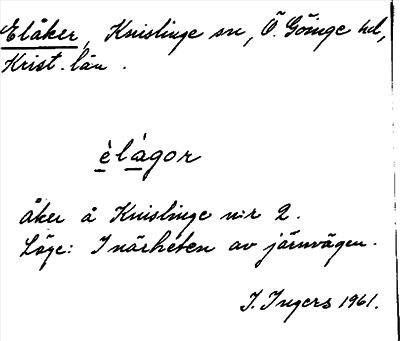 Elåker, Knislinge sn, Ö. Göinge hd,
Krist. län.
èlágor
åker å Knislinge n:r 2.
Läge: I närheten av järnvägen.
I. Ingers 1961.